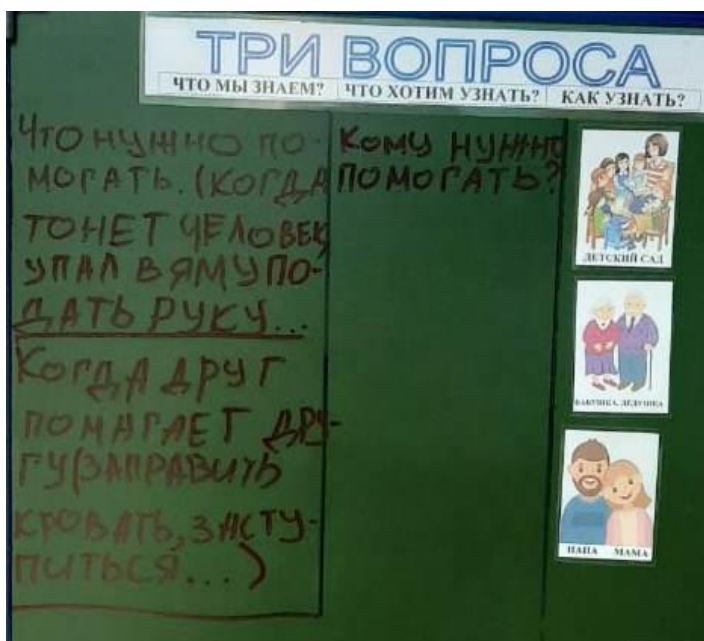 ТРИ ВОПРОСА
ЧТО МЫ ЗНАЕМ?
ЧТО ХОТИМ УЗНАТЬ?
КАК УЗНАТЬ?
ЧТО НУЖНО ПО-
МОГАТЬ. (КОГДА
ТОНЕТ ЧЕЛОВЕК,
УПАЛ В ЯМУ ПО-
ДАТЬ РУКУ...
КОГДА ДРУГ
ПОМАГАЕТ ДРУ-
ГУ(ЗАПРАВИТЬ
КРОВАТЬ, ЗАСТУ-
ПИТЬСЯ...)
КОМУ НУЖНО
ПОМОГАТЬ?
ДЕТСКИЙ САД
БАБУШКА, ДЕДУШКА
ПАПА МАМА